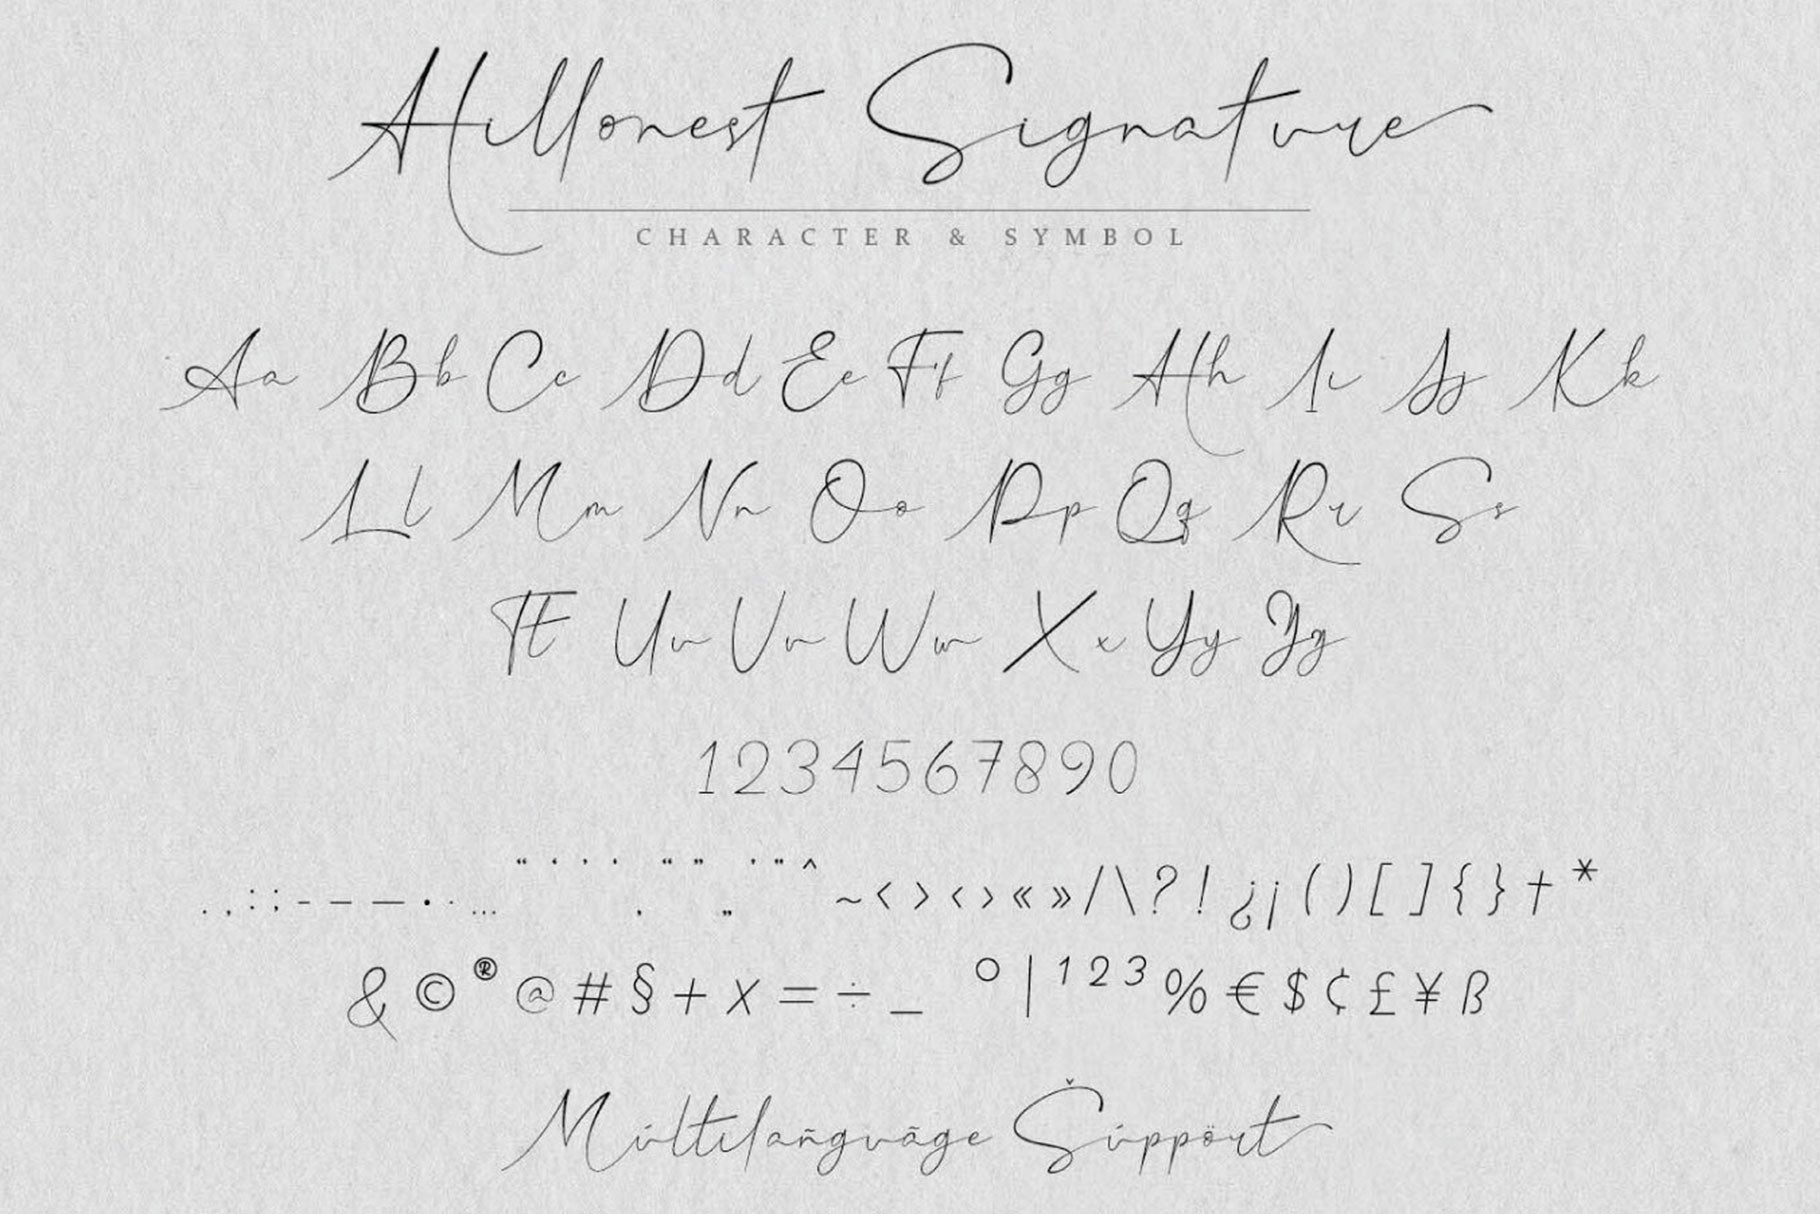 Hillonest Signature
CHARACTER & SYMBOL
Aa Bb Cc Dd Ee Ff Gg Hh Ii Jj Kk
Ll Mm Nn Oo Pp Qq Rr Ss
Tt Uu Vv Ww Xx Yy Zz
1234567890
. , : ; - – — • · … " ‘ ’ ‘ “ ” ‚ „ ' " ^ ~ < > ‹ › « » / \ ? ! ¿ ¡ ( ) [ ] { } † *
& © ® @ # § + x = ÷ _ ° | ¹ ² ³ % € $ ¢ £ ¥ ß
Múltilañguãge Šúppört